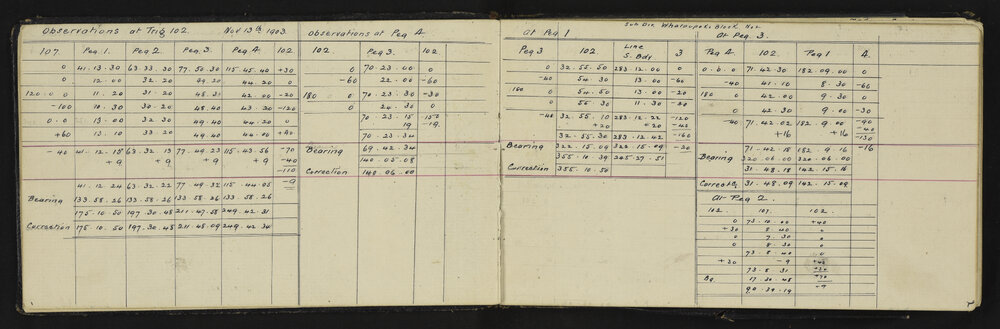 Observations at Trig 102. Nov 13th 1903
107. Peg 1. Peg 2 Peg 3. Peg 4 102
0 41.13.30 63.33.30 77.50.30 115.45.40 +30
0 12.00 32.20 49.20 44.20 0
120.0 0 11.20 31.20 48.30 42.00 -20
-100 10.30 30.20 48.40 43.20 -120
0.0 0 13.00 32.30 49.40 44.20 0
+60 13.10 33.20 49.40 44.00 +40
-40 41.12.15 63.32.13 77.49.23 115.43.56 -70
+9 +9 +9 +9 -40
-110
41.12.24 63.32.22 77.49.32 115.44.05 -9
Bearing 133.58.26 133.58.26 133.58.26 133.58.26
175.10.50 197.30.48 211.47.58 249.42.31
Correction 175.10.50 197.30.48 211.48.09 249.42.34
Observations at Peg 4
102 Peg 3. 102
0 70.23.00 0
-60 22.00 -60
180 0 70.23.30 -30
0 24.30 0
70.23.15 -150
19 -19
70.23.34
Bearing 69.42.34
140.05.08
Correction 140.06.00
Sub Div Whataupoko Block No2
At Peg 1
Peg 3 102 Line 3
S. Bdy
0 32.55.50 283.12.00 0
-40 54.30 13.00 -60
180 0 54.50 13.00 -20
0 56.30 11.30 -20
-40 32.55.10 283.12.22 -120
+20 +20 -40
32.55.30 283.12.42 -160
Bearing 322.15.09 322.15.09 -20
355.10.39 245.27.51
Correction 355.10.50
At Peg 3.
Peg 4 102. Peg 1 4.
0.0.0 71.42.30 182.09.00 0
-40 41.10 8.30 -60
180 0 42.00 9 30 0
0 42.30 9.00 -30
-40 71.42.02 182.9.00 -90
+16 +16 -40
-130
71.42.18 182.9.16 -16
Bearing 320.06.00 320.06.00
31.48.18 142.15.16
Correctn. 31.48.09 142.15.09
At Peg 2.
102. 107. 102.
0 73.10.00 +40
+30 8 40 0
0 7.30 0
0 8.30 0
73.8.40 0
+20 -9 +40
73.8.31 +30
Bg. 17.30.48 +70
90.39.19 +9